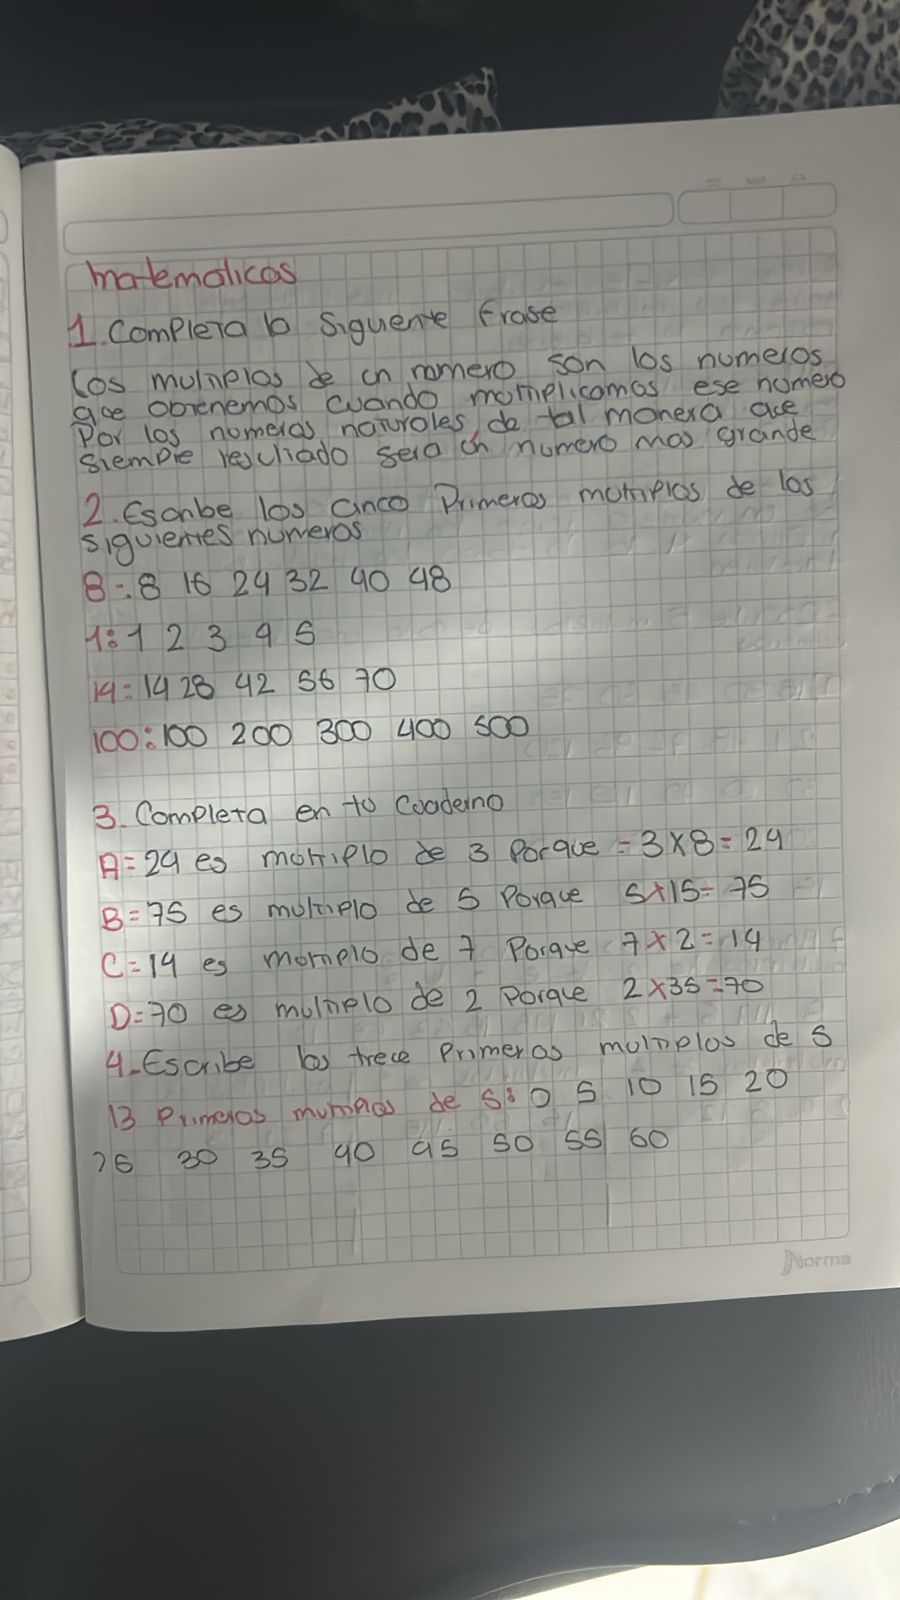 Matematicas
1. Completa la Siguente frase
Los multiplos de un numero son los numeros
que obtenemos cuando multiplicamos ese numero
Por los numeros naturales, de tal manera que
siempre resultado sera un numero mas grande
2. Escribe los cinco Primeros multiplos de los
siguientes numeros
8: 8 16 24 32 40 48
1: 1 2 3 4 5
14: 14 28 42 56 70
100: 100 200 300 400 500
3. Completa en tu Cuaderno
A= 24 es multiplo de 3 Porque = 3x8= 24
B= 75 es multiplo de 5 Porque 5x15= 75
C= 14 es multiplo de 7 Porque 7x2= 14
D= 70 es multiplo de 2 Porque 2x35=70
4. Escribe los trece Primeros multiplos de 5
13 Primeros multiplos de 5: 0 5 10 15 20
25 30 35 40 45 50 55 60
Norma